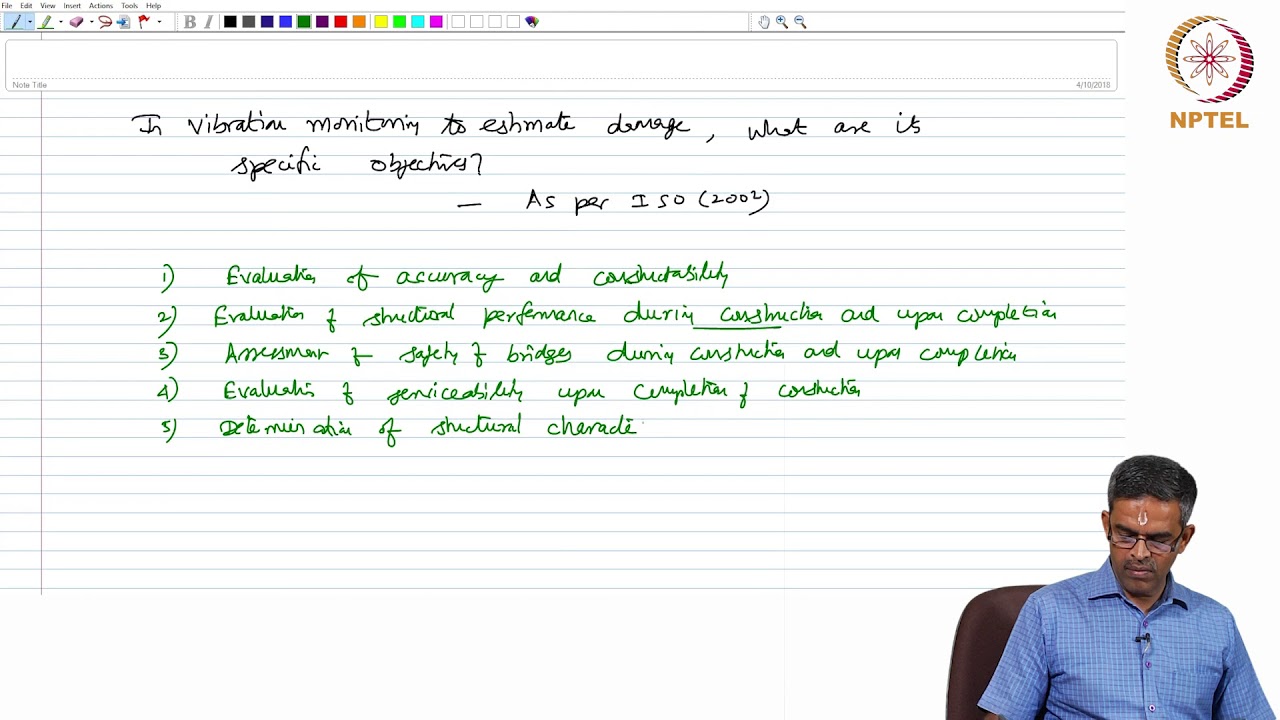 File Edit View Insert Actions Tools Help
B I
Note Title
4/10/2018
NPTEL
In vibration monitoring to estimate damage, what are its
specific objectives?
— As per ISO (2002)
1) Evaluation of accuracy and constructability
2) Evaluation of structural performance during construction and upon completion
3) Assessment of safety of bridges during construction and upon completion
4) Evaluation of serviceability upon completion of construction
5) Determination of structural characte